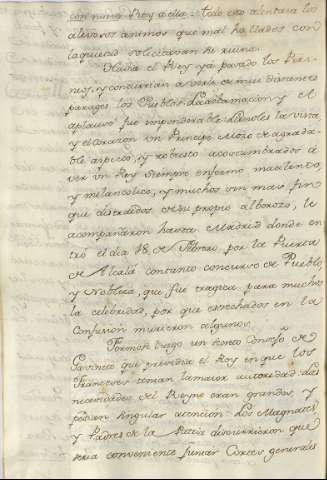 con nuevo Rey a ella: todo eso alentava los
alevosos animos que mal hallados con
la quietud solicitavan su ruina.
Havia el Rey ya pasado los Piri-
neos, y concurrian a verle de mui distantes
parages los Pueblos. La aclamacion, y el
aplauso fue imponderable. Llenoles la vista,
y el corazon un Principe Mozo de agrada-
ble aspecto, y robusto acostumbrados a
ver un Rey siempre enfermo macilento,
y melancolico, y muchos sin mas fin
que distraidos de su propio alborozo, le
acompañaron hasta Madrid donde en-
tró el dia 18 de Febrero por la Puerta
de Alcalá con tanto concurso de Pueblo,
y Nobleza, que fue tragica para muchos
la celebridad, por que estrechados en la
confusion murieron algunos.
Formose luego un Consejo de
que presidia el Rey en que los
Franceses tenian la maior autoridad. Las
necesidades del Reyno eran grandes, y
pedian singular atencion. Los Magnates,
y Padres de la Patria discurrieron que
seria conveniente juntar Cortes generales